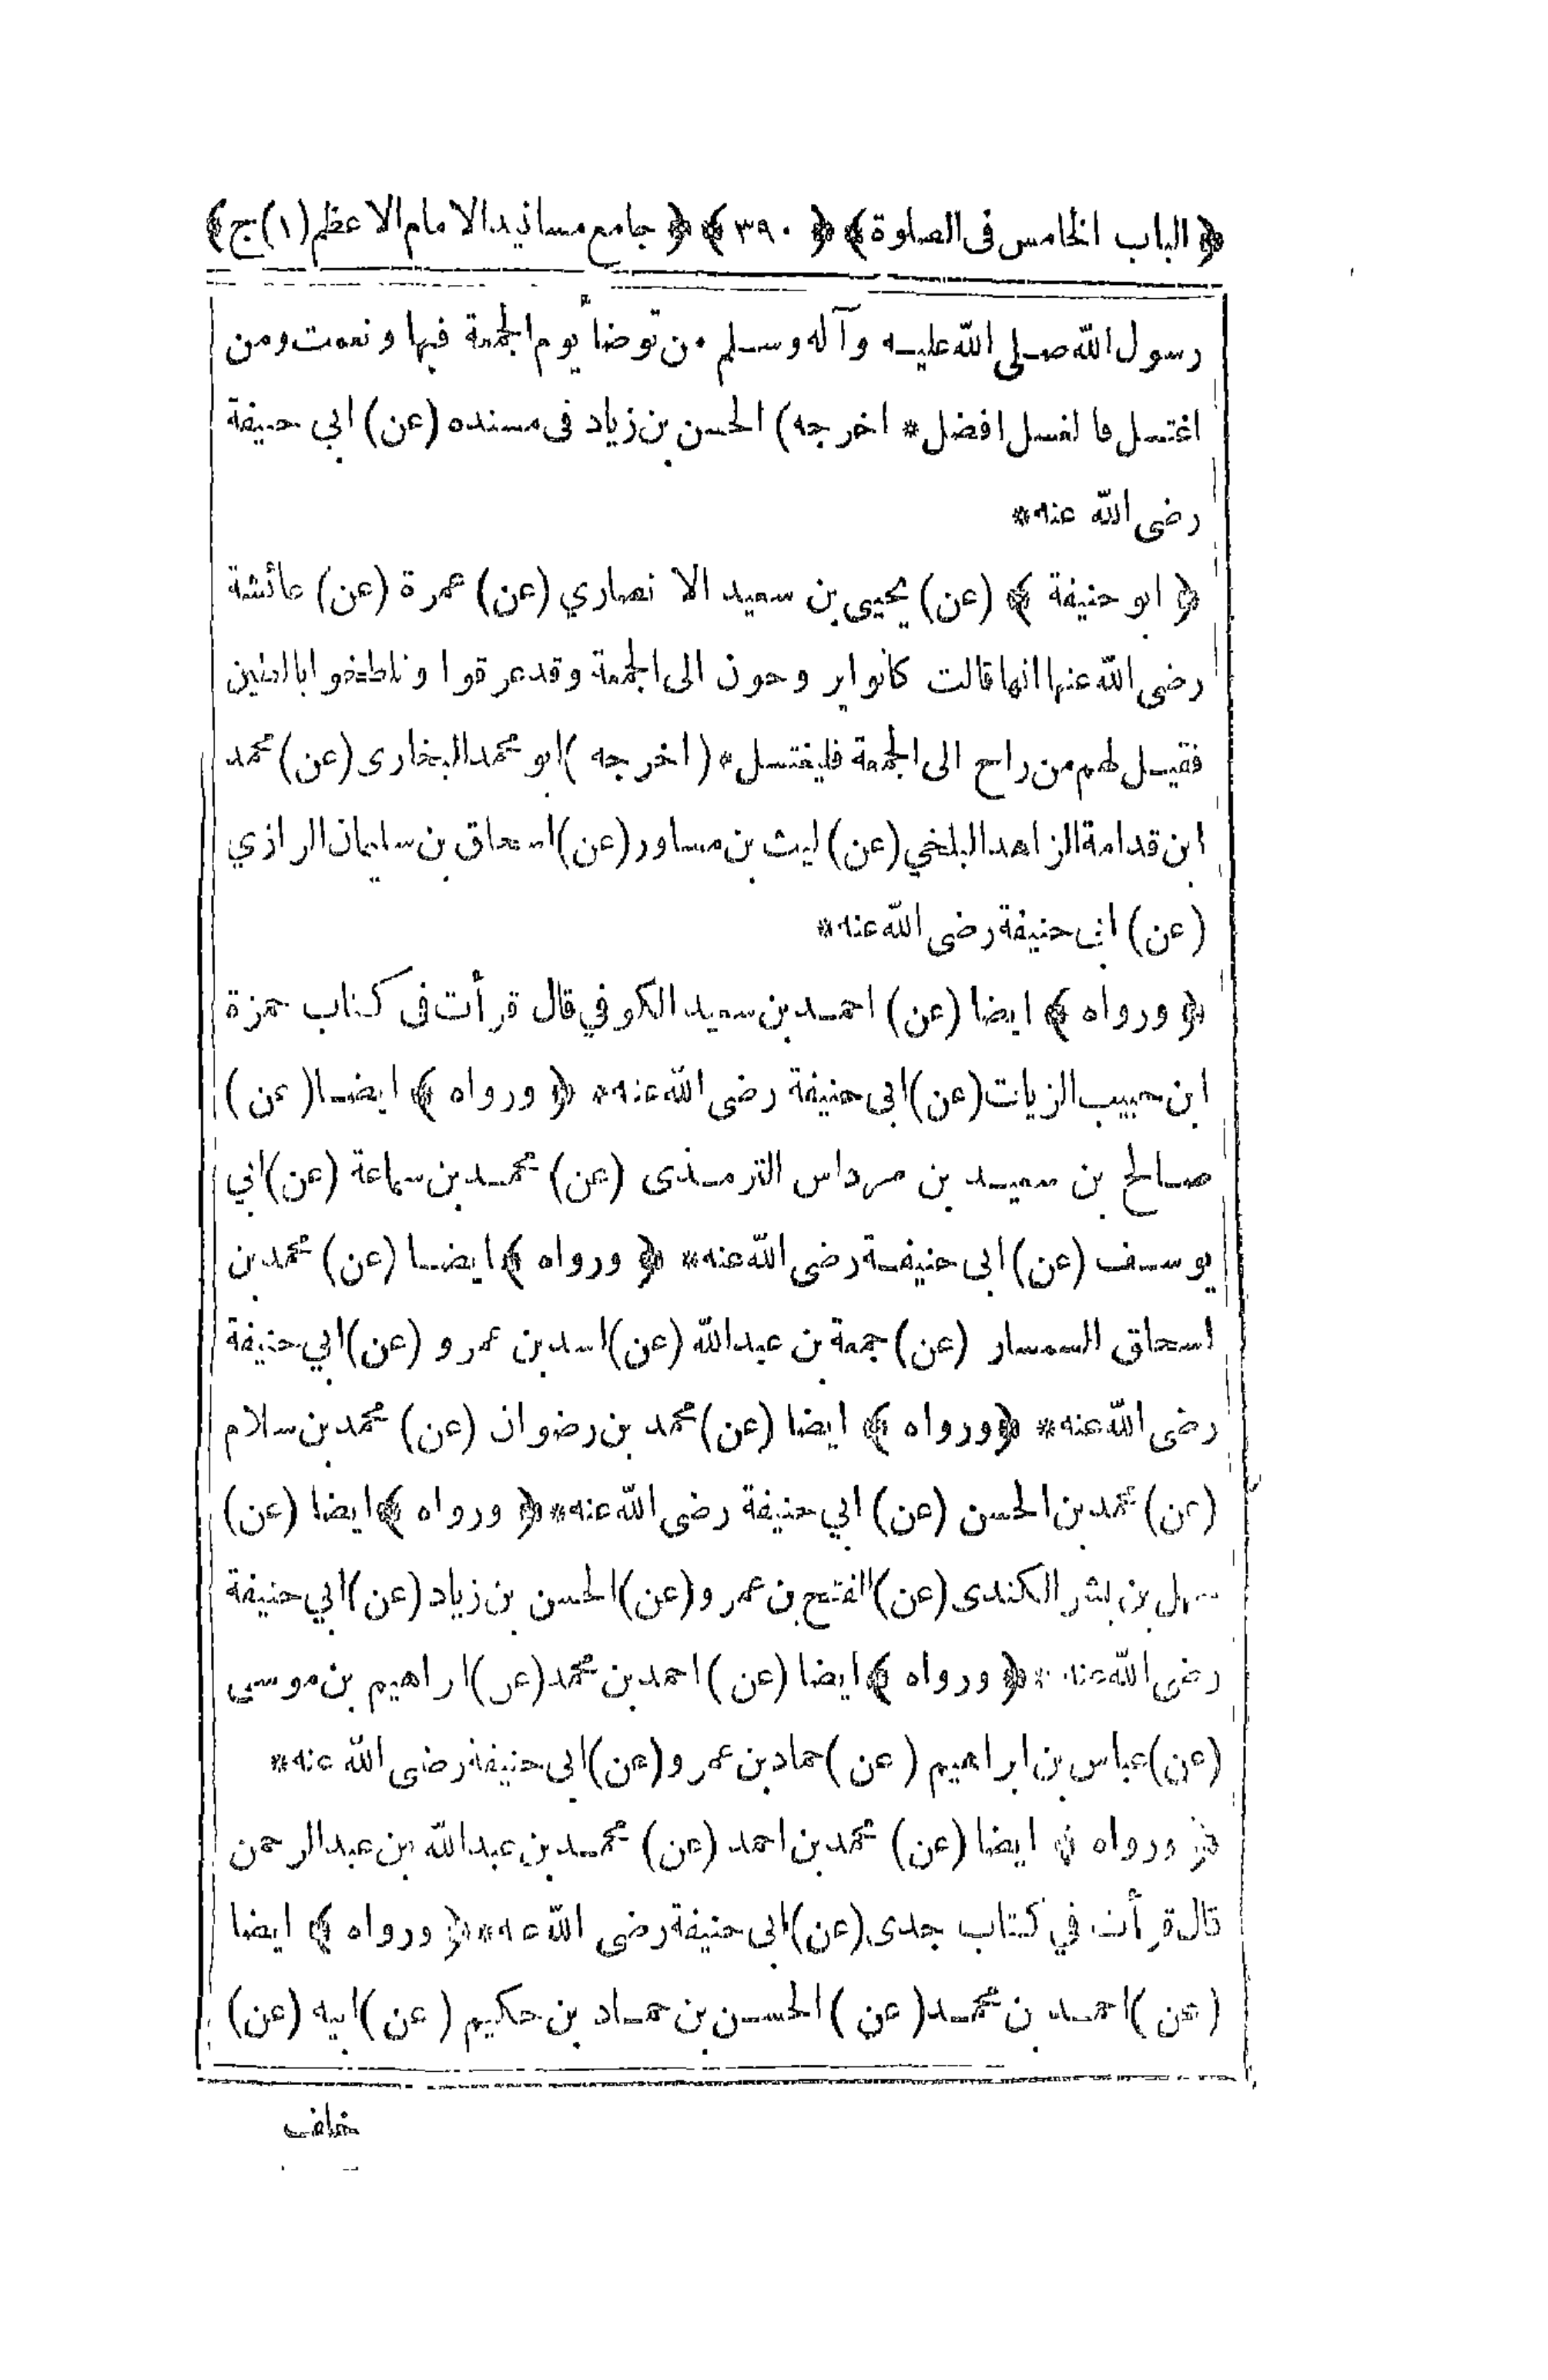 ﴿ الباب الخامس فى الصلوة ﴾ ﴿ ٣٩٠ ﴾ ﴿ جامع مسانيد الامام الاعظم (١) ج ﴾
رسول الله صلى الله عليه وآله وسلم من توضأ يوم الجمعة فبها ونعمت ومن
اغتسل فالغسل افضل * اخرجه) الحسن بن زياد فى مسنده (عن) ابي حنيفة
رضى الله عنه *
﴿ ابو حنيفة ﴾ (عن) يحيى بن سعيد الانصاري (عن) عمرة (عن) عائشة
رضى الله عنها انها قالت كانوا يروحون الى الجمعة وقد عرقوا وتلطخوا بالطين
فقيل لهم من راح الى الجمعة فليغتسل * ( اخرجه ) ابو محمد البخارى (عن) محمد
ابن قدامة الزاهد البلخي (عن) ليث بن مساور (عن) اسحاق بن سليمان الرازي
(عن) ابى حنيفة رضى الله عنه *
﴿ ورواه ﴾ ايضا (عن) احمد بن سعيد الكوفي قال قرأت فى كتاب حمزة
ابن حبيب الزيات (عن) ابى حنيفة رضى الله عنه * ﴿ ورواه ﴾ ايضا (عن)
صالح بن سعيد بن مرداس الترمذى (عن) محمد بن سماعة (عن) ابي
يوسف (عن) ابى حنيفة رضى الله عنه * ﴿ ورواه ﴾ ايضا (عن) محمد بن
اسحاق السمسار (عن) جمعة بن عبد الله (عن) اسد بن عمرو (عن) ابي حنيفة
رضى الله عنه * ﴿ ورواه ﴾ ايضا (عن) محمد بن رضوان (عن) محمد بن سلام
(عن) محمد بن الحسن (عن) ابي حنيفة رضى الله عنه * ﴿ ورواه ﴾ ايضا (عن)
سهل بن بشر الكندى (عن) الفتح بن عمرو (عن) الحسن بن زياد (عن) ابي حنيفة
رضى الله عنه * ﴿ ورواه ﴾ ايضا (عن) احمد بن محمد (عن) ابراهيم بن موسى
(عن) عباس بن ابراهيم (عن) حماد بن عمرو (عن) ابى حنيفة رضى الله عنه *
﴿ ورواه ﴾ ايضا (عن) محمد بن احمد (عن) محمد بن عبد الله بن عبد الرحمن
قال قرأت في كتاب جدى (عن) ابى حنيفة رضى الله عنه * ﴿ ورواه ﴾ ايضا
(عن) احمد بن محمد (عن) الحسن بن حماد بن حكيم (عن) ابيه (عن)
خلف